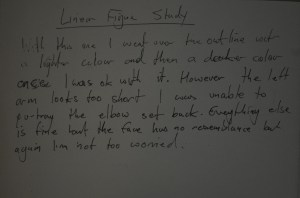 Linear Figure Study
With this one I went over the outline with
a lighter colour and then a darker color
once I was ok with it. However the left
arm looks too short I was unable to
portray the elbow set back. Everything else
is fine but the face has no resemblance but
again I'm not too worried.